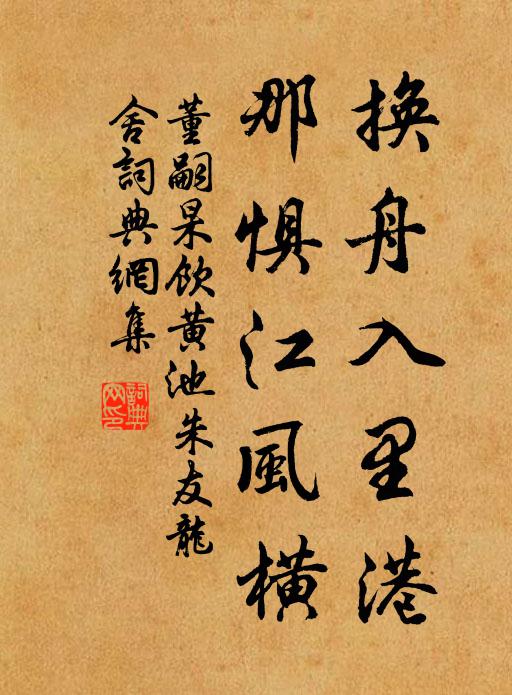 換舟入里港
那惧江風横
董嗣杲飲黄池朱友龍
舍詞典網集
詞典
网印